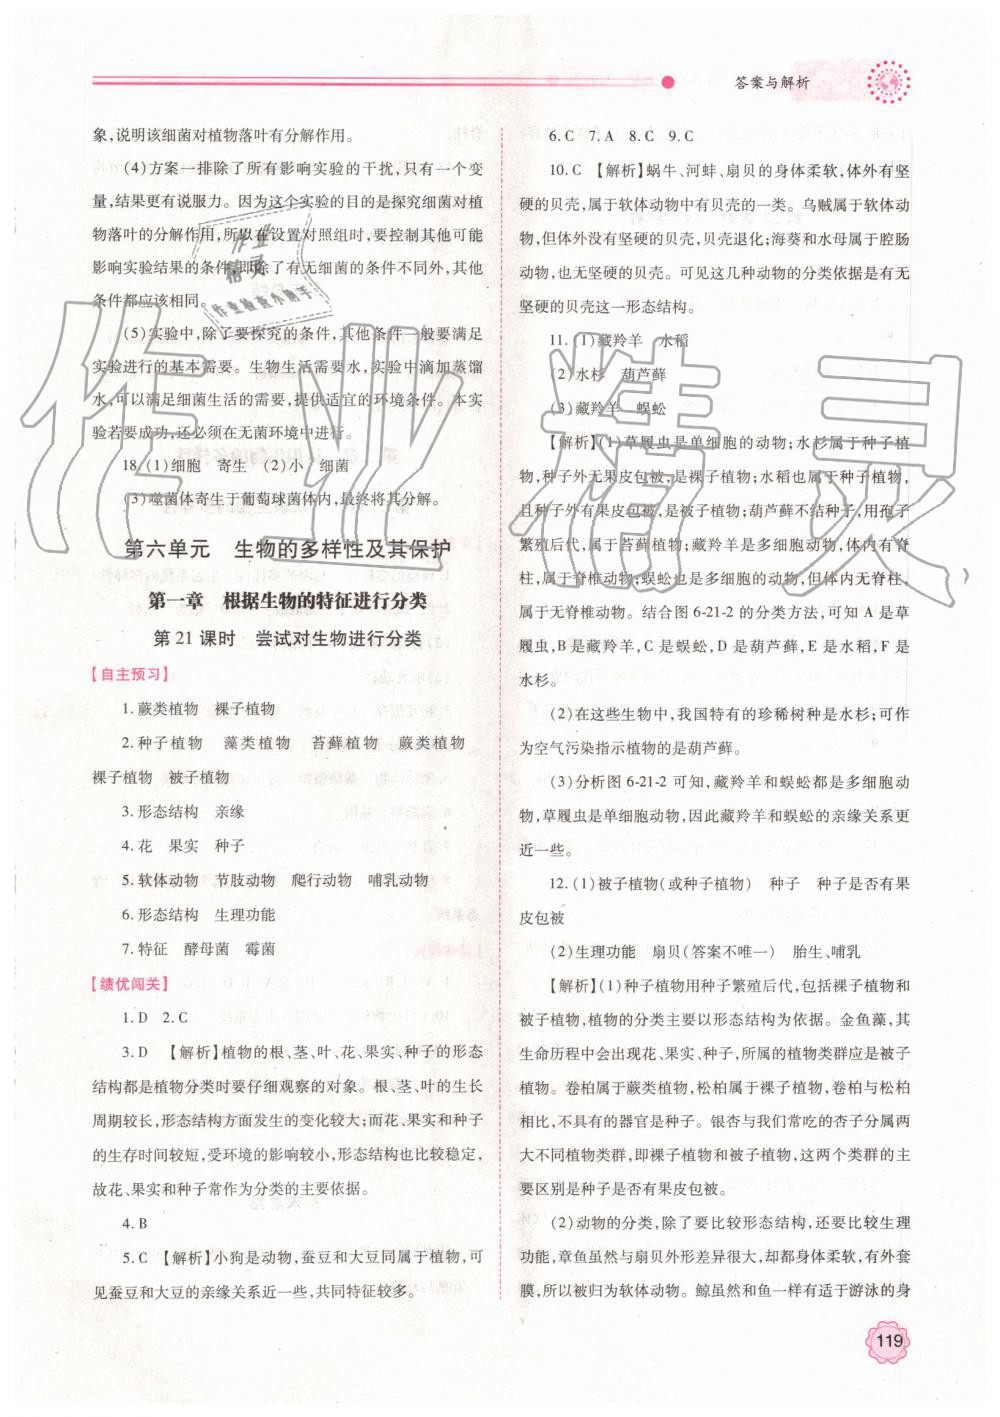 答案与解析
象,说明该细菌对植物落叶有分解作用。
(4)方案一排除了所有影响实验的干扰,只有一个变
量,结果更有说服力。因为这个实验的目的是探究细菌对植
物落叶的分解作用,所以在设置对照组时,要控制其他可能
影响实验结果的条件,即除了有无细菌的条件不同外,其他
条件都应该相同。
(5)实验中,除了要探究的条件,其他条件一般要满足
实验进行的基本需要。生物生活需要水,实验中滴加蒸馏
水,可以满足细菌生活的需要,提供适宜的环境条件。本实
验若要成功,还必须在无菌环境中进行。
18.(1)细胞 寄生 (2)小 细菌
(3)噬菌体寄生于葡萄球菌体内,最终将其分解。
第六单元 生物的多样性及其保护
第一章 根据生物的特征进行分类
第21课时 尝试对生物进行分类
【自主预习】
1.蕨类植物 裸子植物
2.种子植物 藻类植物 苔藓植物 蕨类植物
裸子植物 被子植物
3.形态结构 亲缘
4.花 果实 种子
5.软体动物 节肢动物 爬行动物 哺乳动物
6.形态结构 生理功能
7.特征 酵母菌 霉菌
【绩优闯关】
1.D 2.C
3.D 【解析】植物的根、茎、叶、花、果实、种子的形态
结构都是植物分类时要仔细观察的对象。根、茎、叶的生长
周期较长,形态结构方面发生的变化较大;而花、果实和种子
的生存时间较短,受环境的影响较小,形态结构也比较稳定,
故花、果实和种子常作为分类的主要依据。
4.B
5.C 【解析】小狗是动物,蚕豆和大豆同属于植物,可
见蚕豆和大豆的亲缘关系近一些,共同特征较多。
6.C 7.A 8.C 9.C
10.C 【解析】蜗牛、河蚌、扇贝的身体柔软,体外有坚
硬的贝壳,属于软体动物中有贝壳的一类。乌贼属于软体动
物,但体外没有坚硬的贝壳,贝壳退化;海葵和水母属于腔肠
动物,也无坚硬的贝壳。可见这几种动物的分类依据是有无
坚硬的贝壳这一形态结构。
11.(1)藏羚羊 水稻
(2)水杉 葫芦藓
(3)藏羚羊 蜈蚣
【解析】(1)草履虫是单细胞的动物;水杉属于种子植
物,种子外无果皮包被,是裸子植物;水稻也属于种子植物,
且种子外有果皮包被,是被子植物;葫芦藓不结种子,用孢子
繁殖后代,属于苔藓植物;藏羚羊是多细胞动物,体内有脊
柱,属于脊椎动物;蜈蚣也是多细胞动物,但体内无脊柱,
属于无脊椎动物。结合图6-21-2的分类方法,可知A是草
履虫,B是藏羚羊,C是蜈蚣,D是葫芦藓,E是水稻,F是
水杉。
(2)在这些生物中,我国特有的珍稀树种是水杉;可作
为空气污染指示植物的是葫芦藓。
(3)分析图6-21-2可知,藏羚羊和蜈蚣都是多细胞动
物,草履虫是单细胞动物,因此藏羚羊和蜈蚣的亲缘关系更
近一些。
12.(1)被子植物(或种子植物) 种子 种子是否有果
皮包被
(2)生理功能 扇贝(答案不唯一) 胎生、哺乳
【解析】(1)种子植物用种子繁殖后代,包括裸子植物和
被子植物,植物的分类主要以形态结构为依据。金鱼藻,其
生命历程中会出现花、果实、种子,所属的植物类群应是被子
植物。卷柏属于蕨类植物,松柏属于裸子植物,卷柏与松柏
相比,不具有的器官是种子。银杏与我们常吃的杏子分属两
大不同植物类群,即裸子植物与被子植物,这两个类群的主
要区别是种子是否有果皮包被。
(2)动物的分类,除了要比较形态结构,还要比较生理
功能,章鱼虽然与扇贝外形差异很大,却都身体柔软,有外套
膜,所以被归为软体动物。鲸虽然和鱼一样有适于游泳的身
119
作业精灵
作业
精灵
作业检查小助手